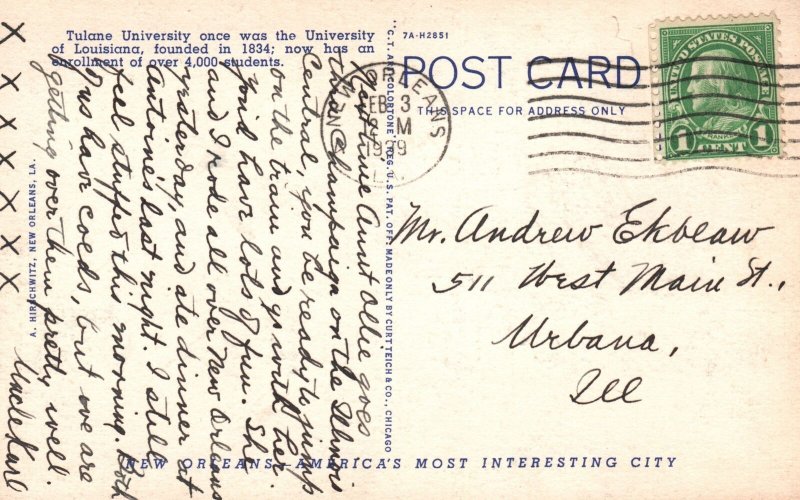 Tulane University once was the University
of Louisiana, founded in 1834; now has an
enrollment of over 4,000 students.
7A-H2851
POST CARD
THIS SPACE FOR ADDRESS ONLY
UNITED STATES POSTAGE
FRANKLIN
1 CENT 1
NEW ORLEANS
FEB 3
M
1939
LA.
Next time Aunt Ollie goes
thru Champaign on the Illinois
Central, you be ready to jump
on the train and go with her.
You'd have lots of fun. She
and I rode all over New Orleans
yesterday, and ate dinner at
Antoine's last night. I still
feel stuffed this morning. Both
of us have colds, but we are
getting over them pretty well.
Uncle Karl
X X X X X X X
Mr. Andrew Ekblaw
511 West Main St.,
Urbana,
Ill
A. HIRSCHWITZ, NEW ORLEANS, LA.
"C.T. ART-COLORTONE" REG. U.S. PAT. OFF. MADE ONLY BY CURT TEICH & CO., CHICAGO
NEW ORLEANS—AMERICA'S MOST INTERESTING CITY